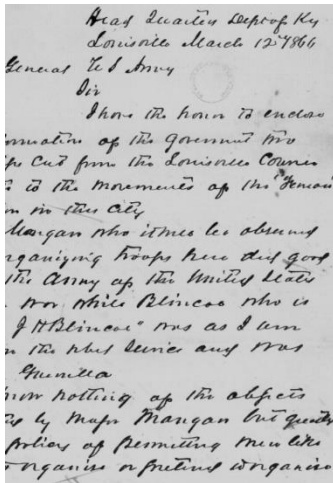 Head Quarters Dept of Ky
Louisville March 12th 1866
General U S Army
Sir
I have the honor to enclose
ormation of the Goverment two
cut from the Louisville Courier
to the movements of the Fenian
in this City
Mangan who it will be observed
rganizing troops here did good
the Army of the United States
war while Blincoe who is
J H Blincoe" was as I am
n the rebel service and was
Guerilla
now nothing of the objects
by Major Mangan but
policy of permitting men like
organise or pretend to organise